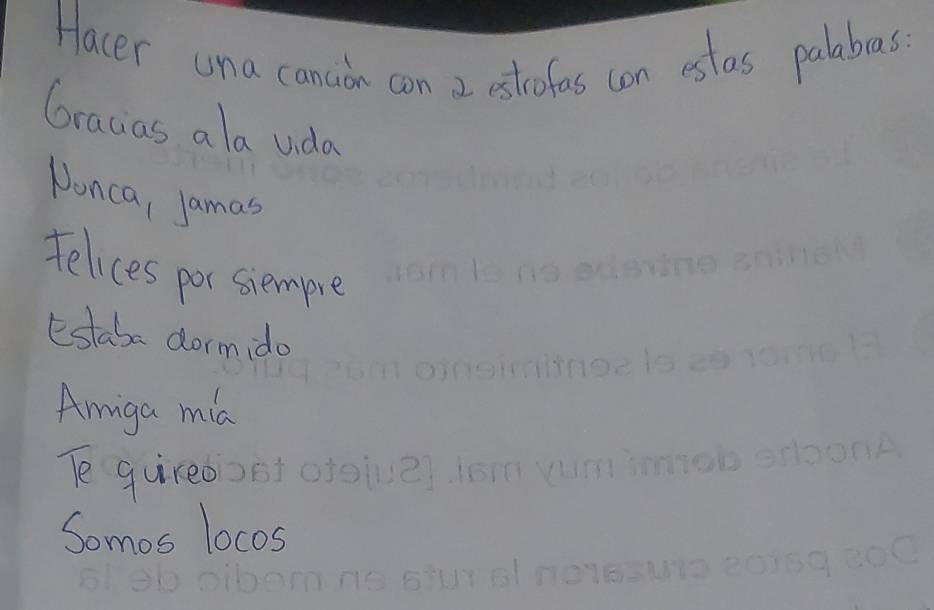 Hacer una canción con 2 estrofas con estas palabras:
Gracias a la vida
Nunca, jamas
Felices por siempre
Estaba dormido
Amiga mía
Te quireo
Somos locos